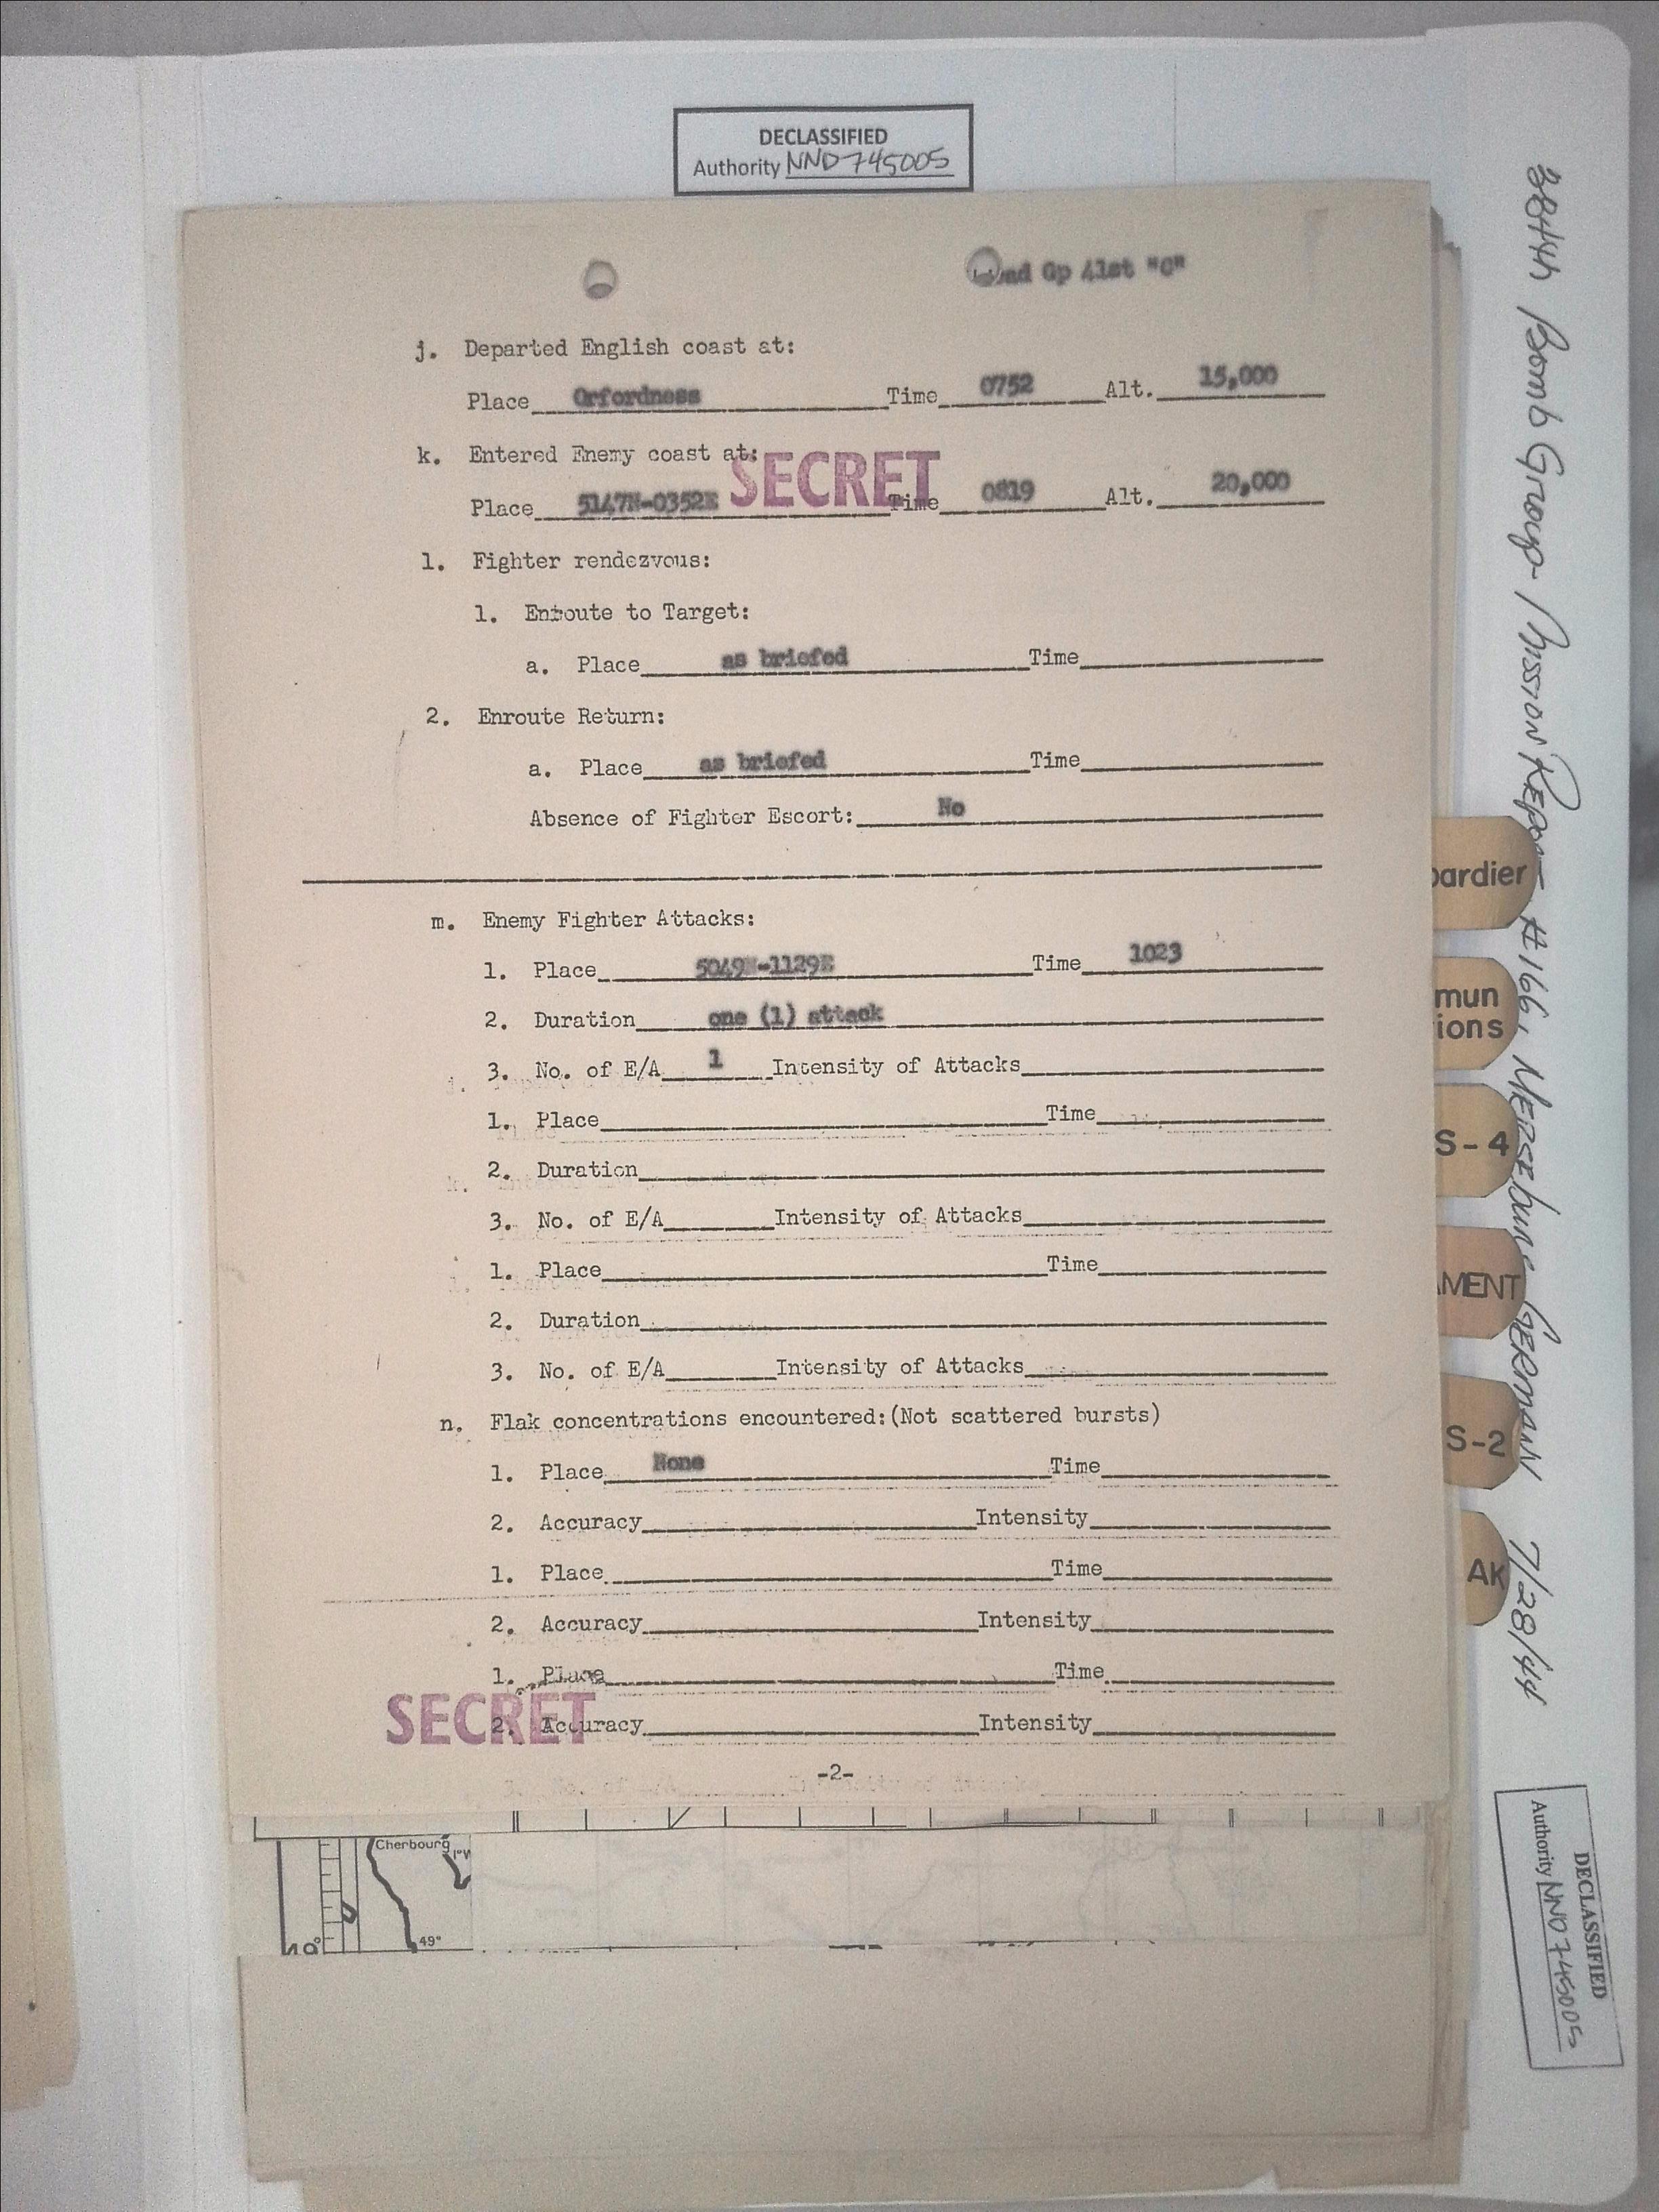 DECLASSIFIED
Authority NND 745005
Gp 41st "C"
j. Departed English coast at:
Place Orfordness Time 0752 Alt. 15,000
k. Entered Enemy coast at:
SECRET
Place 5147N-0352E Time 0819 Alt. 20,000
l. Fighter rendezvous:
1. Enroute to Target:
a. Place as briefed Time
2. Enroute Return:
a. Place as briefed Time
Absence of Fighter Escort: No
m. Enemy Fighter Attacks:
1. Place 5049N-1129E Time 1023
2. Duration one (1) attack
3. No. of E/A 1 Intensity of Attacks
1. Place Time
2. Duration
3. No. of E/A Intensity of Attacks
1. Place Time
2. Duration
3. No. of E/A Intensity of Attacks
n. Flak concentrations encountered:(Not scattered bursts)
1. Place None Time
2. Accuracy Intensity
1. Place Time
2. Accuracy Intensity
1. Place Time
SECRET
2. Accuracy Intensity
-2-
Cherbourg
1°W
49°
49°
384th Bomb Group - Mission Report #166, Merseburg GERMAN 7/28/44
bardier
mun
ions
S-4
AMENT
S-2
AK
DECLASSIFIED
Authority NND 745005